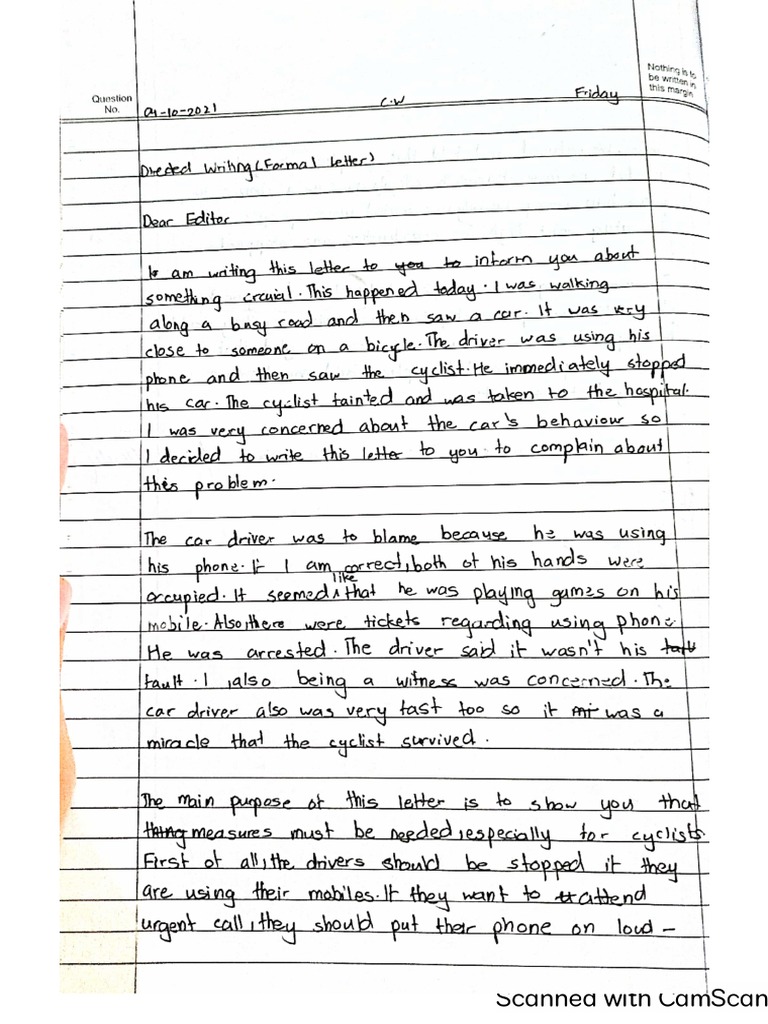 Question
No.
01-10-2021
C.W
Friday
Nothing is to
be written in
this margin
Directed Writing (Formal Letter)
Dear Editor
I am writing this letter to you to inform you about
something crucial. This happened today. I was walking
along a busy road and then saw a car. It was very
close to someone on a bicycle. The driver was using his
phone and then saw the cyclist. He immediately stopped
his car. The cyclist fainted and was taken to the hospital.
I was very concerned about the car's behaviour so
I decided to write this letter to you to complain about
this problem.
The car driver was to blame because he was using
his phone. If I am correct, both of his hands were
occupied. It seemed like that he was playing games on his
mobile. Also, there were tickets regarding using phone
He was arrested. The driver said it wasn't his
fault. I, also being a witness was concerned. The
car driver also was very fast too so it was a
miracle that the cyclist survived.
The main purpose of this letter is to show you that
measures must be needed, especially for cyclists
First of all, the drivers should be stopped if they
are using their mobiles. If they want to attend
urgent call, they should put their phone on loud-
Scanned with CamScan